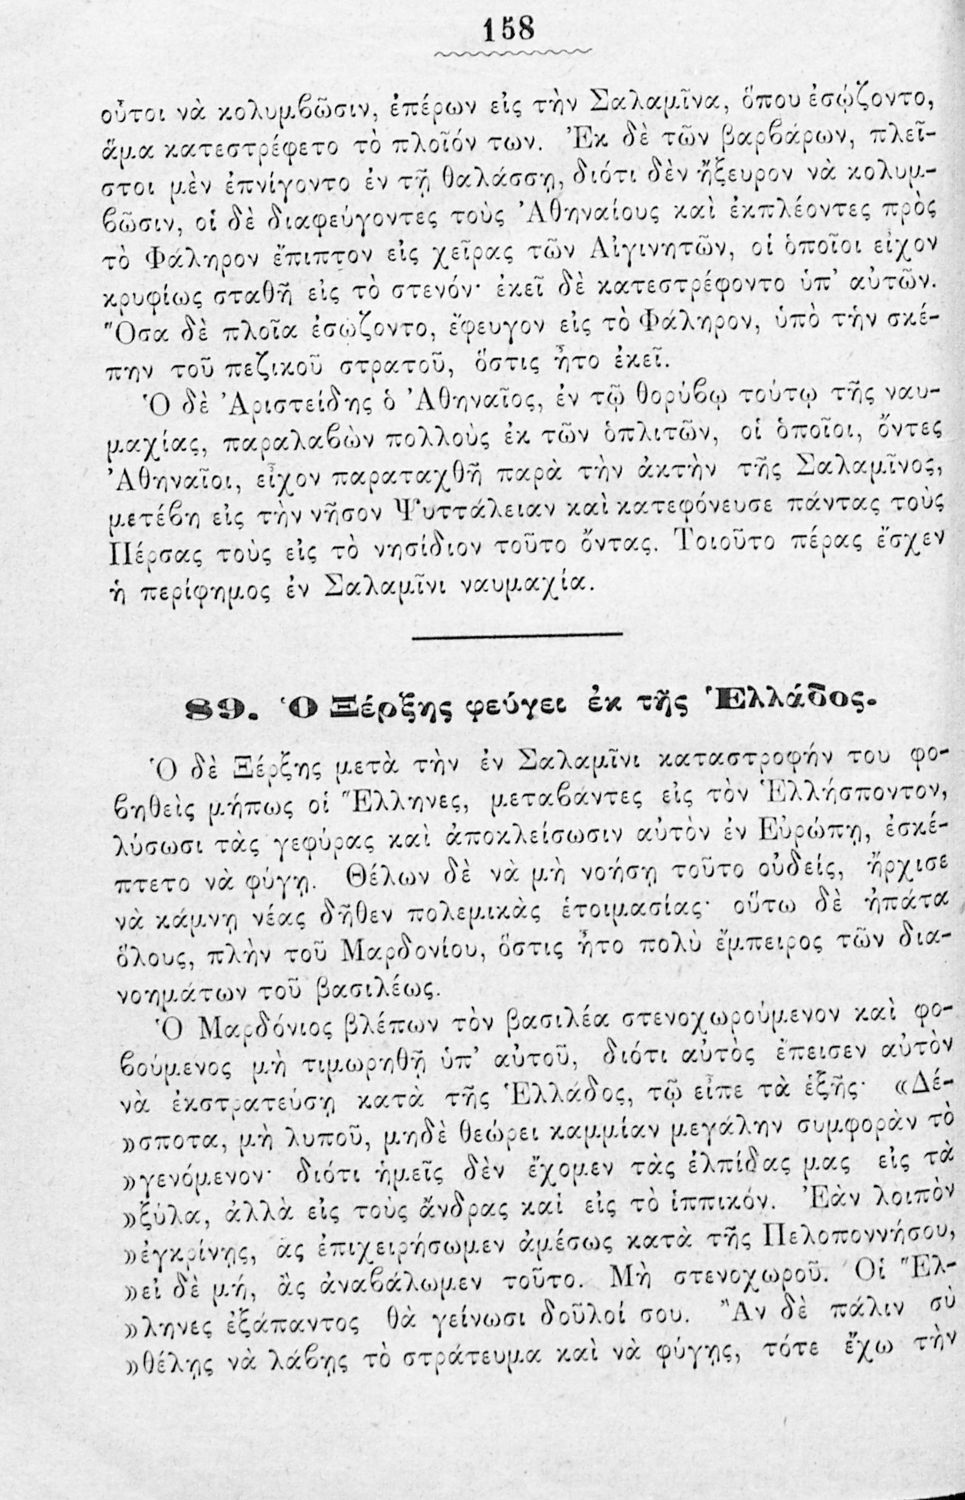 158
οὗτοι νὰ κολυμβῶσιν, ἐπέρων εἰς τὴν Σαλαμῖνα, ὅπου ἐσῴζοντο,
ἅμα κατεστρέφετο τὸ πλοῖόν των. Ἐκ δὲ τῶν βαρβάρων, πλεῖ-
στοι μὲν ἐπνίγοντο ἐν τῇ θαλάσσῃ, διότι δὲν ἤξευρον νὰ κολυμ-
βῶσιν, οἱ δὲ διαφεύγοντες τοὺς Ἀθηναίους καὶ ἐκπλέοντες πρὸς
τὸ Φάληρον ἔπιπτον εἰς χεῖρας τῶν Αἰγινητῶν, οἱ ὁποῖοι εἶχον
κρυφίως σταθῆ εἰς τὸ στενόν· ἐκεῖ δὲ κατεστρέφοντο ὑπ' αὐτῶν.
Ὅσα δὲ πλοῖα ἐσώζοντο, ἔφευγον εἰς τὸ Φάληρον, ὑπὸ τὴν σκέ-
πην τοῦ πεζικοῦ στρατοῦ, ὅστις ἦτο ἐκεῖ.
Ὁ δὲ Ἀριστείδης ὁ Ἀθηναῖος, ἐν τῷ θορύβῳ τούτῳ τῆς ναυ-
μαχίας, παραλαβὼν πολλοὺς ἐκ τῶν ὁπλιτῶν, οἱ ὁποῖοι, ὄντες
Ἀθηναῖοι, εἶχον παραταχθῆ παρὰ τὴν ἀκτὴν τῆς Σαλαμῖνος,
μετέβη εἰς τὴν νῆσον Ψυττάλειαν καὶ κατεφόνευσε πάντας τοὺς
Πέρσας τοὺς εἰς τὸ νησίδιον τοῦτο ὄντας. Τοιοῦτο πέρας ἔσχεν
ἡ περίφημος ἐν Σαλαμῖνι ναυμαχία.
89. Ὁ Ξέρξης φεύγει ἐκ τῆς Ἑλλάδος.
Ὁ δὲ Ξέρξης μετὰ τὴν ἐν Σαλαμῖνι καταστροφήν του φο-
βηθεὶς μήπως οἱ Ἕλληνες, μεταβάντες εἰς τὸν Ἑλλήσποντον,
λύσωσι τὰς γεφύρας καὶ ἀποκλείσωσιν αὐτὸν ἐν Εὐρώπῃ, ἐσκέ-
πτετο νὰ φύγῃ. Θέλων δὲ νὰ μὴ νοήσῃ τοῦτο οὐδείς, ἤρχισε
νὰ κάμνῃ νέας δῆθεν πολεμικὰς ἑτοιμασίας· οὕτω δὲ ἠπάτα
ὅλους, πλὴν τοῦ Μαρδονίου, ὅστις ἦτο πολὺ ἔμπειρος τῶν δια-
νοημάτων τοῦ βασιλέως.
Ὁ Μαρδόνιος βλέπων τὸν βασιλέα στενοχωρούμενον καὶ φο-
βούμενος μὴ τιμωρηθῇ ὑπ' αὐτοῦ, διότι αὐτὸς ἔπεισεν αὐτὸν
νὰ ἐκστρατεύσῃ κατὰ τῆς Ἑλλάδος, τῷ εἶπε τὰ ἑξῆς· «Δέ-
»σποτα, μὴ λυποῦ, μηδὲ θεώρει καμμίαν μεγάλην συμφορὰν τὸ
»γενόμενον· διότι ἡμεῖς δὲν ἔχομεν τὰς ἐλπίδας μας εἰς τὰ
»ξύλα, ἀλλὰ εἰς τοὺς ἄνδρας καὶ εἰς τὸ ἱππικόν. Ἐὰν λοιπὸν
»ἐγκρίνῃς, ἂς ἐπιχειρήσωμεν ἀμέσως κατὰ τῆς Πελοποννήσου,
»εἰ δὲ μή, ἂς ἀναβάλωμεν τοῦτο. Μὴ στενοχωροῦ. Οἱ Ἕλ-
»ληνες ἐξάπαντος θὰ γείνωσι δοῦλοί σου. Ἂν δὲ πάλιν σὺ
»θέλῃς νὰ λάβῃς τὸ στράτευμα καὶ νὰ φύγῃς, τότε ἔχω τὴν